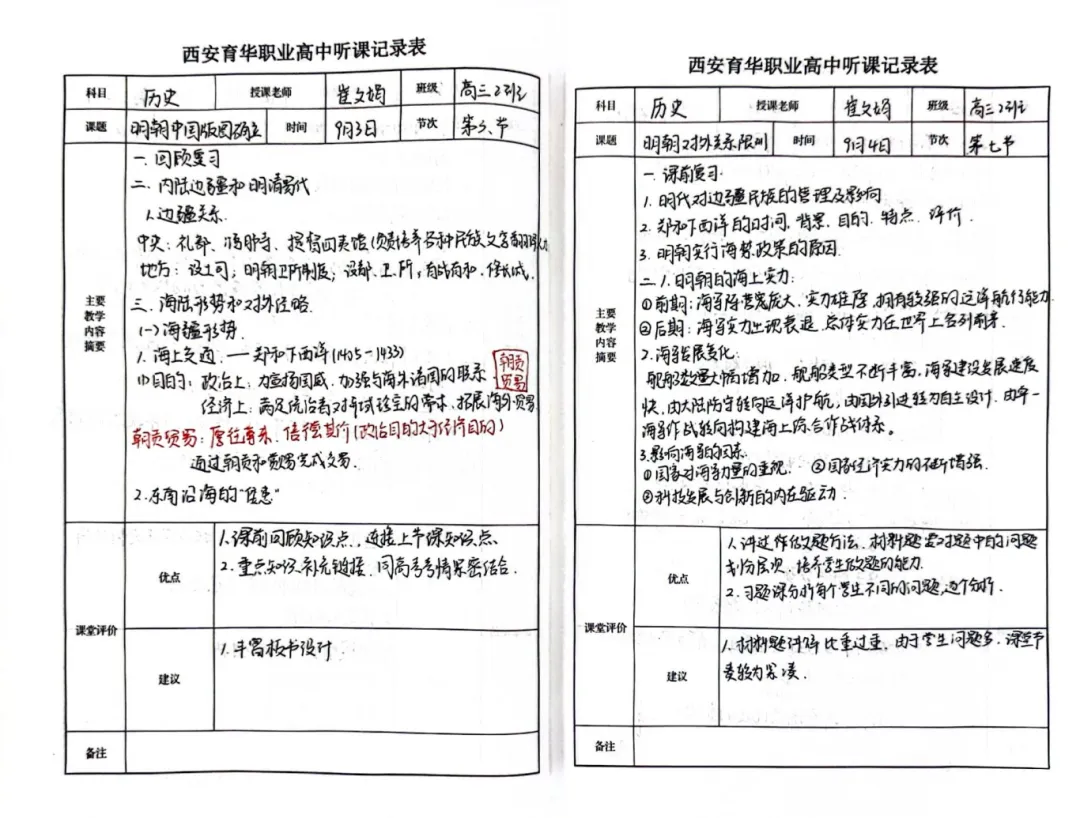 西安育华职业高中听课记录表
科目 历史 授课老师 崔文娟 班级 高三2班
课题 明朝中国版图确立 时间 9月3日 节次 第3、节
主要教学内容摘要
一. 回顾复习
二. 内陆边疆和明清易代
1.边疆关系.
中央: 礼部、鸿胪寺、提督四夷馆(负责培养各种民族文字翻译人
地方: 设土司; 明朝卫所制度; 设都、卫、所; 有战有和、修长城.
三. 海陆形势和对外经略.
(一)海疆形势.
1. 海上交通. — 郑和下西洋(1405-1433)
朝贡贸易
(1)目的: 政治上: 为宣扬国威. 加强与海外诸国的联系
经济上: 满足统治者对异域珍宝的需求. 拓展海外贸易
朝贡贸易: 厚往薄来. 倍偿其价(政治目的大于经济目的)
通过朝贡和赏赐完成交易.
2. 东南沿海的"倭患"
课堂评价
优点
1.课前回顾知识点. 连接上节课知识点.
2. 重点知识补充链接. 同高考考情紧密结合.
建议
1.丰富板书设计
备注
西安育华职业高中听课记录表
科目 历史 授课老师 崔文娟 班级 高三2班
课题 明朝对外关系 时间 9月4日 节次 第七节
主要教学内容摘要
一. 课前复习:
1. 明代对边疆民族的管理及影响
2. 郑和下西洋的时间. 背景. 目的. 特点. 评价.
3. 明朝实行海禁政策的原因.
二.1.明朝的海上实力:
①前期: 海军阵营庞大. 实力雄厚. 拥有较强的远洋航行能力
②后期: 海军实力出现衰退. 总体实力在世界上名列前茅.
2.海军发展变化:
舰船数量大幅增加. 舰船类型不断丰富. 海军建设发展速度
快. 由大陆防守转向远洋护航. 由国外引进转为自主设计. 由单一
海军作战转向构建海上综合作战体系.
3.影响海军的因素.
①国家对海军力量的重视. ②国家经济实力的不断增强.
③科技发展与创新的内在驱动.
课堂评价
优点
1.讲述作做题方法. 材料题要对题中的问题
划分层次. 培养学生做题的能力.
2. 习题课分析每个学生不同的问题,逐个分析.
建议
1.材料题讲解比重过重. 由于学生问题多. 课堂节
奏较为紧凑.
备注